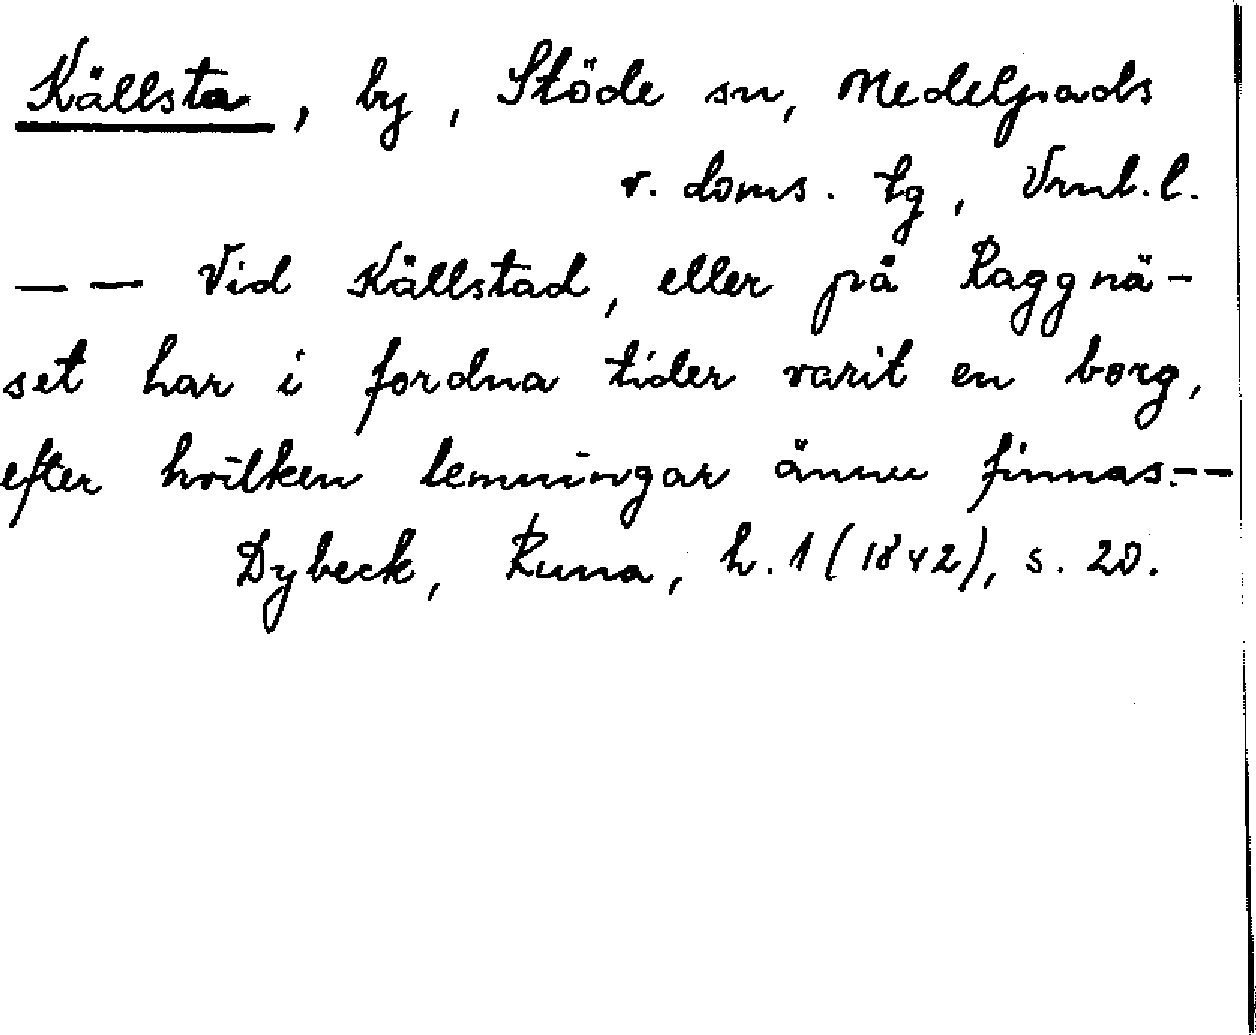 Källsta, by, Stöde sn, Medelpads
v. doms. tg, Vrnl. l.
— — Vid Källstad, eller på Raggnä-
set har i fordna tider varit en borg,
efter hvilken lemningar ännu finnas. — —
Dybeck, Runa, h. 1 (1842), s. 20.